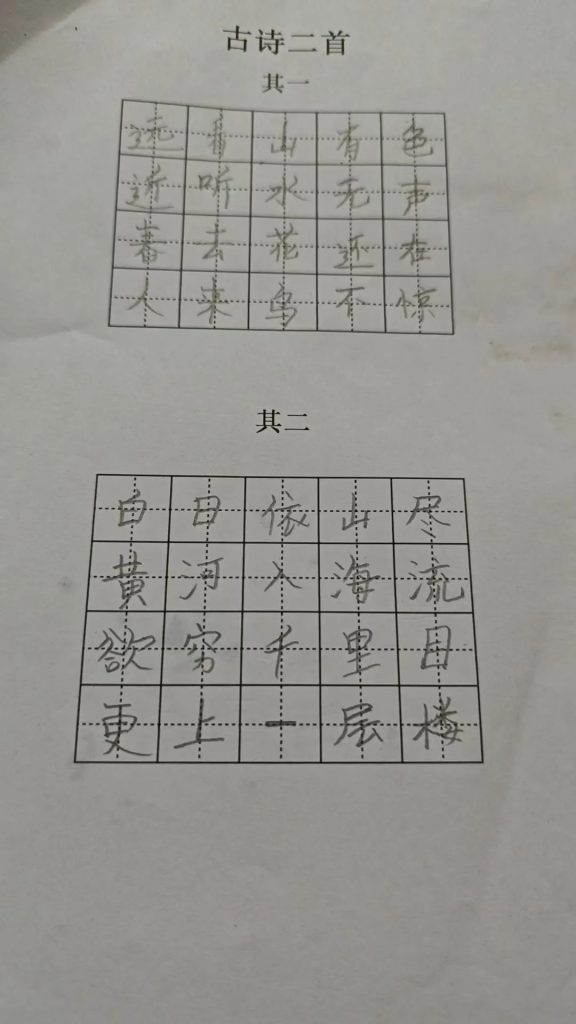 古诗二首
其一
远看山有色
近听水无声
春去花还在
人来鸟不惊
其二
白日依山尽
黄河入海流
欲穷千里目
更上一层楼